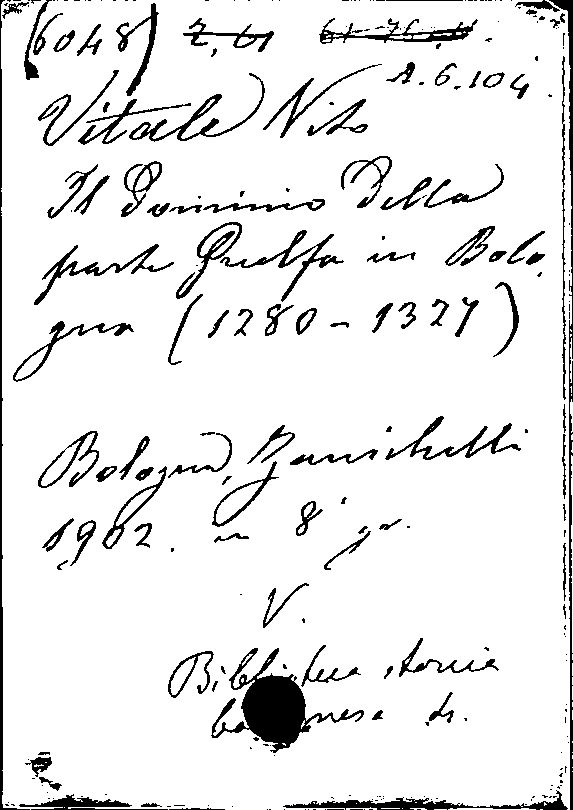 (6048) 2, 61
A.6.104.
Vitale Vito
Il Dominio Della
parte Guelfa in Bolo,
gna (1280-1327)
Bologna, Zanichelli
1902. in 8° gr.
V.
Biblioteca storica